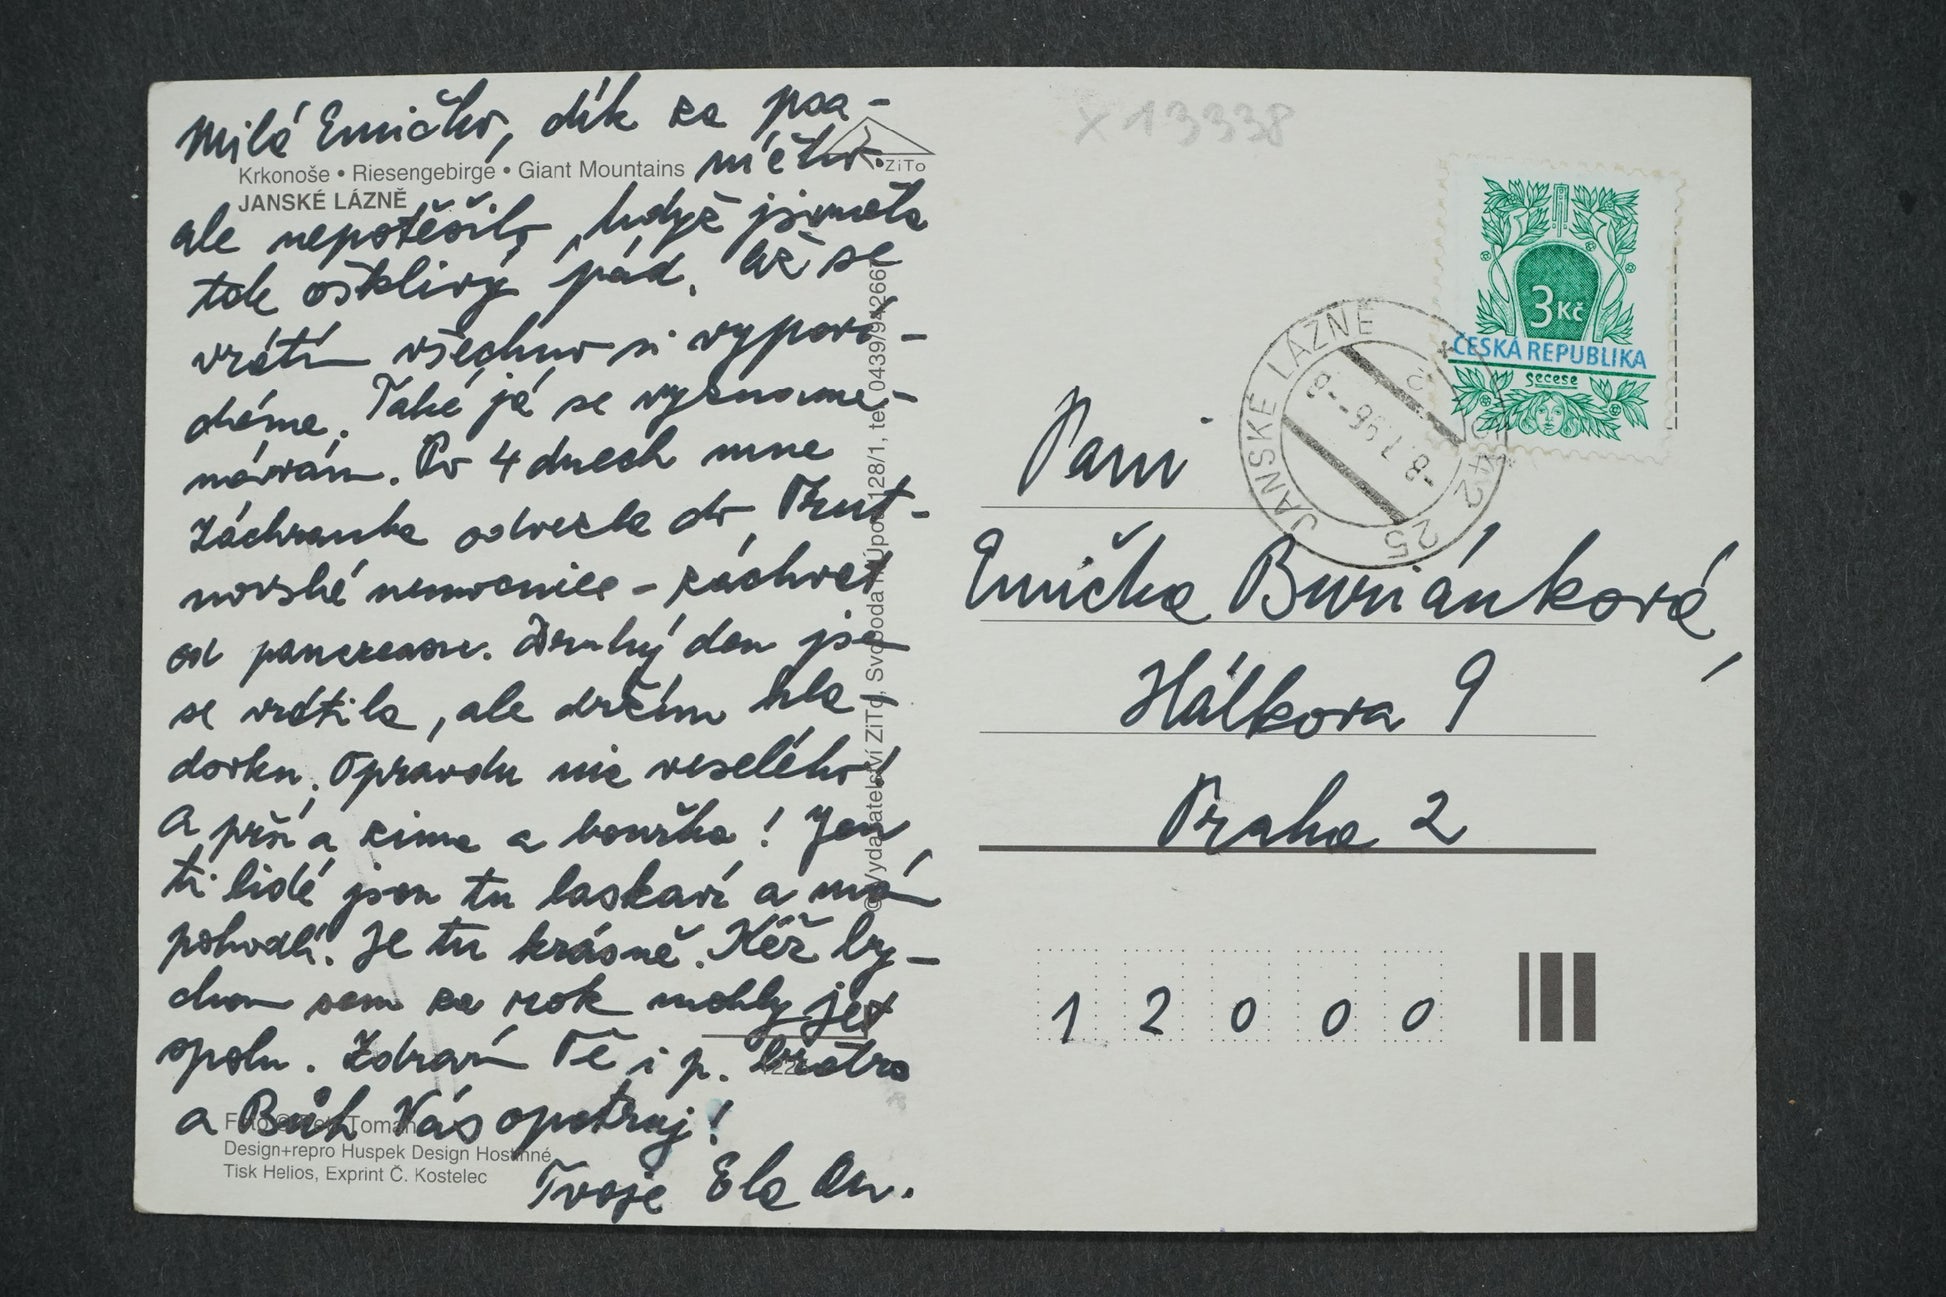 Milá Emičko, dík za psa-
níčko.
ale nepotěšilo, když jsi měla
tak ošklivý pád. Až se
vrátím všechno si vypoví-
dáme. Také já se vyznamе-
návám. Po 4 dnech mne
záchranka odvezla do Trut-
novské nemocnice - záchvat
od pancreasu. Druhý den jsem
se vrátila, ale držím hla-
dovku. Opravdu nic veselého!
A prší a zima a bouřka! Jen
ti lidé jsou tu laskaví a mám
pohodlí. Je tu krásně. Kéž by-
chom sem za rok mohly jet
spolu. Zdraví Tě i p. bratra
a Bůh Vás opatruj!
Tvoje Ela
Krkonoše • Riesengebirge • Giant Mountains
JANSKÉ LÁZNĚ
ZiTo
© Vydavatelství ZiTo, Svoboda n. Úpou 128/1, tel. 0439/942667
Foto © Toman
Design+repro Huspek Design Hostinné
Tisk Helios, Exprint Č. Kostelec
X 13338
3 Kč
ČESKÁ REPUBLIKA
secese
JANSKÉ LÁZNĚ
542 25
-8.7.96--8
Paní
Emička Buriánková,
Hálkova 9
Praha 2
1 2 0 0 0